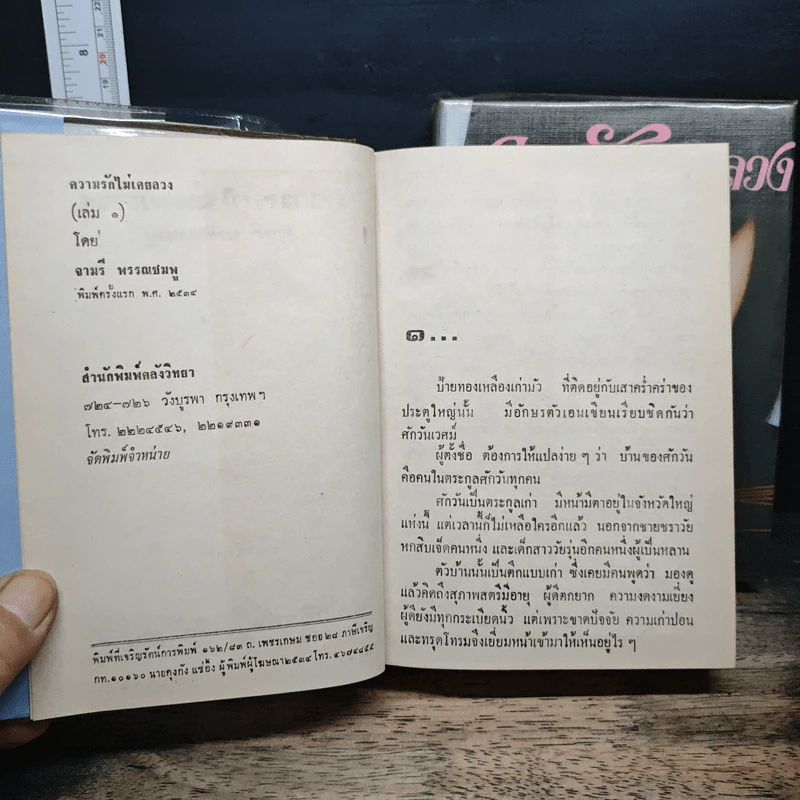 8
20
21
19
ลวง
ความรักไม่เคยลวง
(เล่ม ๑)
โดย
จามรี พรรณชมพู
พิมพ์ครั้งแรก พ.ศ. ๒๕๓๔
สำนักพิมพ์คลังวิทยา
๗๒๔-๗๒๖ วังบูรพา กรุงเทพฯ
โทร. ๒๒๒๔๕๔๖, ๒๒๑๙๓๓๑
จัดพิมพ์จำหน่าย
พิมพ์ที่เจริญรัตน์การพิมพ์ ๑๖๒/๘๓ ถ. เพชรเกษม ซอย ๒๘ ภาษีเจริญ
กท. ๑๐๑๖๐ นายคุงกัง แซ่อึ้ง ผู้พิมพ์ผู้โฆษณา ๒๕๓๔ โทร. ๔๖๗๔๘๕๕
๑...
ป้ายทองเหลืองเก่ามัว ที่ติดอยู่กับเสาคร่ำคร่าของ
ประตูใหญ่นั้น มีอักษรตัวเอนเขียนเรียบชิดกันว่า
ศักวันเวศม์
ผู้ตั้งชื่อ ต้องการให้แปลง่าย ๆ ว่า บ้านของศักวัน
คือคนในตระกูลศักวันทุกคน
ศักวันเป็นตระกูลเก่า มีหน้ามีตาอยู่ในจังหวัดใหญ่
แห่งนี้ แต่เวลานี้ก็ไม่เหลือใครอีกแล้ว นอกจากชายชราวัย
หกสิบเจ็ดคนหนึ่ง และเด็กสาววัยรุ่นอีกคนหนึ่งผู้เป็นหลาน
ตัวบ้านนั้นเป็นตึกแบบเก่า ซึ่งเคยมีคนพูดว่า มองดู
แล้วคิดถึงสุภาพสตรีมีอายุ ผู้ดีตกยาก ความงดงามเยี่ยง
ผู้ดียังมีทุกกระเบียดนิ้ว แต่เพราะขาดปัจจัย ความเก่าปอน
และทรุดโทรมจึงเยี่ยมหน้าเข้ามาให้เห็นอยู่ไร ๆ